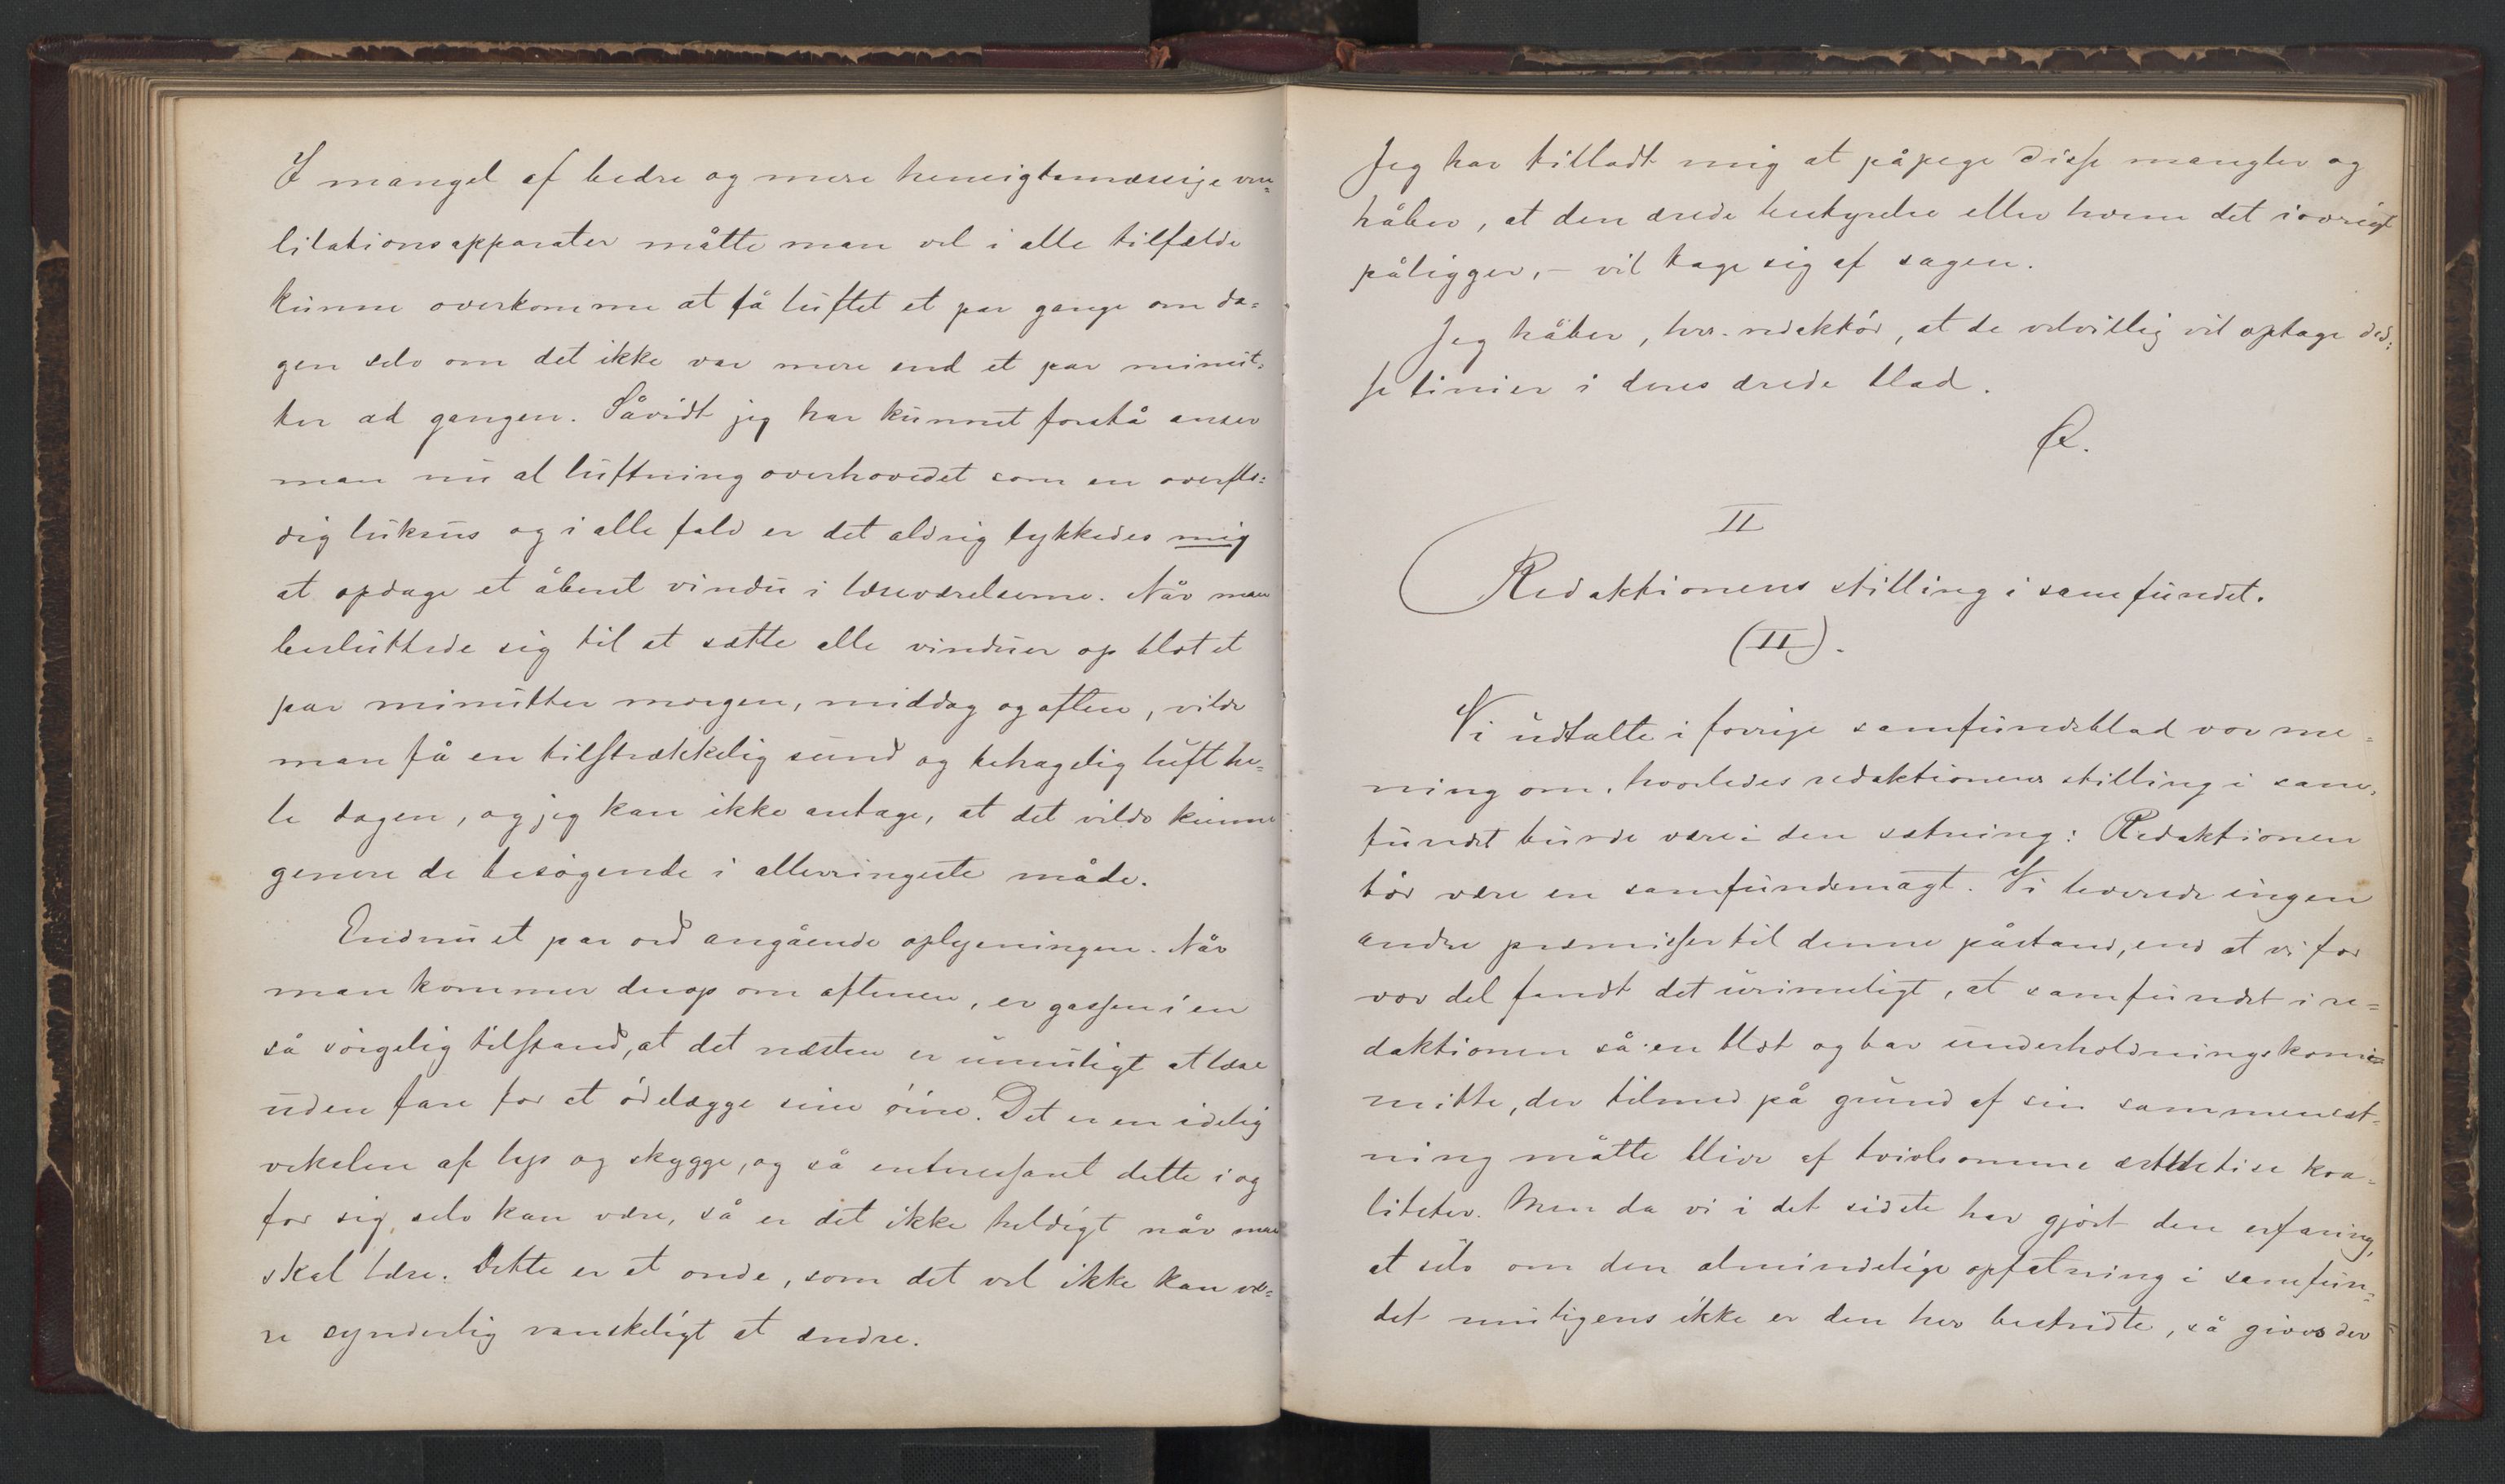 I mangel af bedre og mere hensigtsmæssige ven=
litationsapparater måtte man vel i alle tilfælde
kunne overkomme at få luftet et par gange om da=
gen selv om det ikke var mere end et par minut=
ter ad gangen. Såvidt jeg har kunnet forstå anser
man nu al luftning overhovedet som en overflø=
dig luksus og i alle fald er det aldrig lykkedes mig
at opdage et åbent vindu i læseværelserne. Når man
besluttede sig til at sætte alle vinduer op blot et
par minutter morgen, middag og aften, vilde
man få en tilstrækkelig sund og behagelig luft he=
le dagen, og jeg kan ikke antage, at det vilde kunne
genere de besøgende i allerringeste måde.
Endnu et par ord angående oplysningen. Når
man kommer derop om aftenen, er gassen i en
så sørgelig tilstand, at det næsten er umuligt at læse
uden fare for at ødelægge sine øine. Det er en idelig
vekslen af lys og skygge, og så enteressant dette i og
for sig selv kan være, så er det ikke heldigt når man
skal læse. Dette er et onde, som det vel ikke kan væ=
re synderlig vanskeligt at ændre.
Jeg har tilladt mig at påpege disse mangler og
håber, at den ærede bestyrelse eller hvem det iøvrigt
påligger, – vil tage sig af sagen.
Jeg håber, hrr. redaktør, at de velvillig vil optage dis=
se linier i deres ærede blad.
Q.
II
Redaktionens stilling i samfundet.
(II).
Vi udtalte i forrige samfundsblad vor me=
ning om, hvorledes redaktionens stilling i sam=
fundet burde være i den sætning: Redaktionen
bør være en samfundsmagt. Vi leverede ingen
andre præmisser til denne påstand, end at vi for
vor del fandt det urimeligt, at samfundet i re=
daktionen så en blot og bar underholdningskom=
mitte, der tilmed på grund af sin sammensæt=
ning måtte blive af tvivlsomme æsthetise kva=
liteter. Men da vi i det sidste har gjort den erfaring,
at selv om den almindelige opfatning i samfun=
det muligens ikke er den her bestridte, så gives der